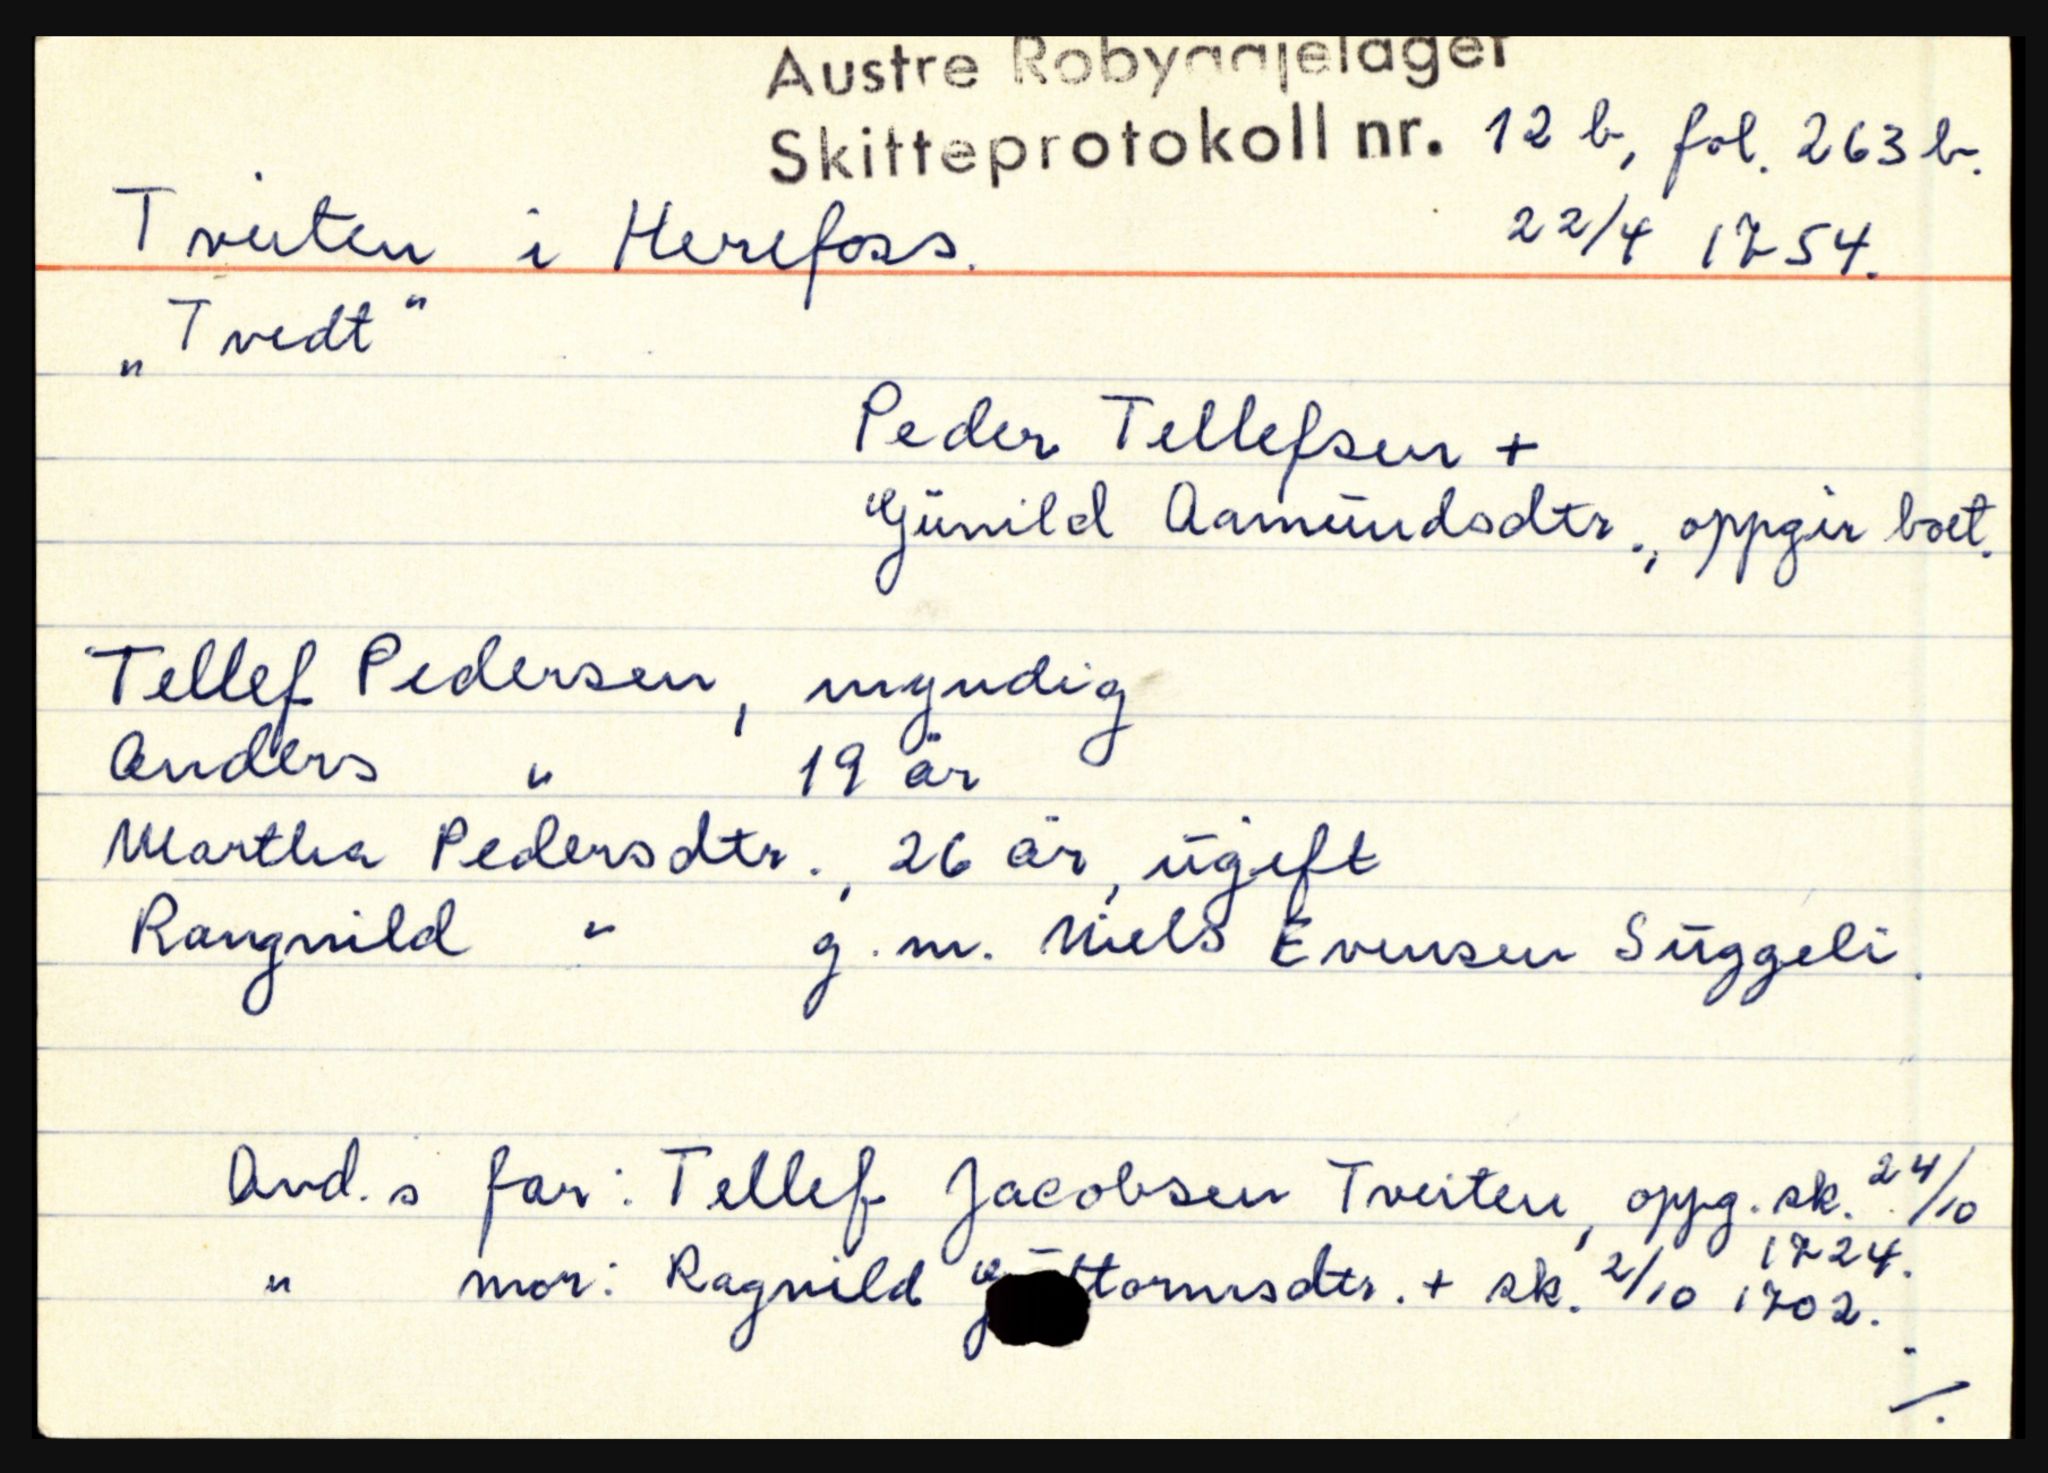 Austre Robyggjelaget
Skifteprotokoll nr. 12 b, fol. 263 b.
Tveiten i Herefoss. 22/4 1754.
„Tvedt“
Peder Tellefsen +
Günild Aamündsdtr., oppgir boet.
Tellef Pedersen, myndig
Anders " 19 år
Martha Pedersdtr., 26 år, ügift
Rangnild " g. m. Niels Evensen Süggeli.
Avd. s far: Tellef Jacobsen Tveiten, oppg. sk. 24/10 1724.
" mor: Ragnild Güttormsdtr. + sk. 2/10 1702.